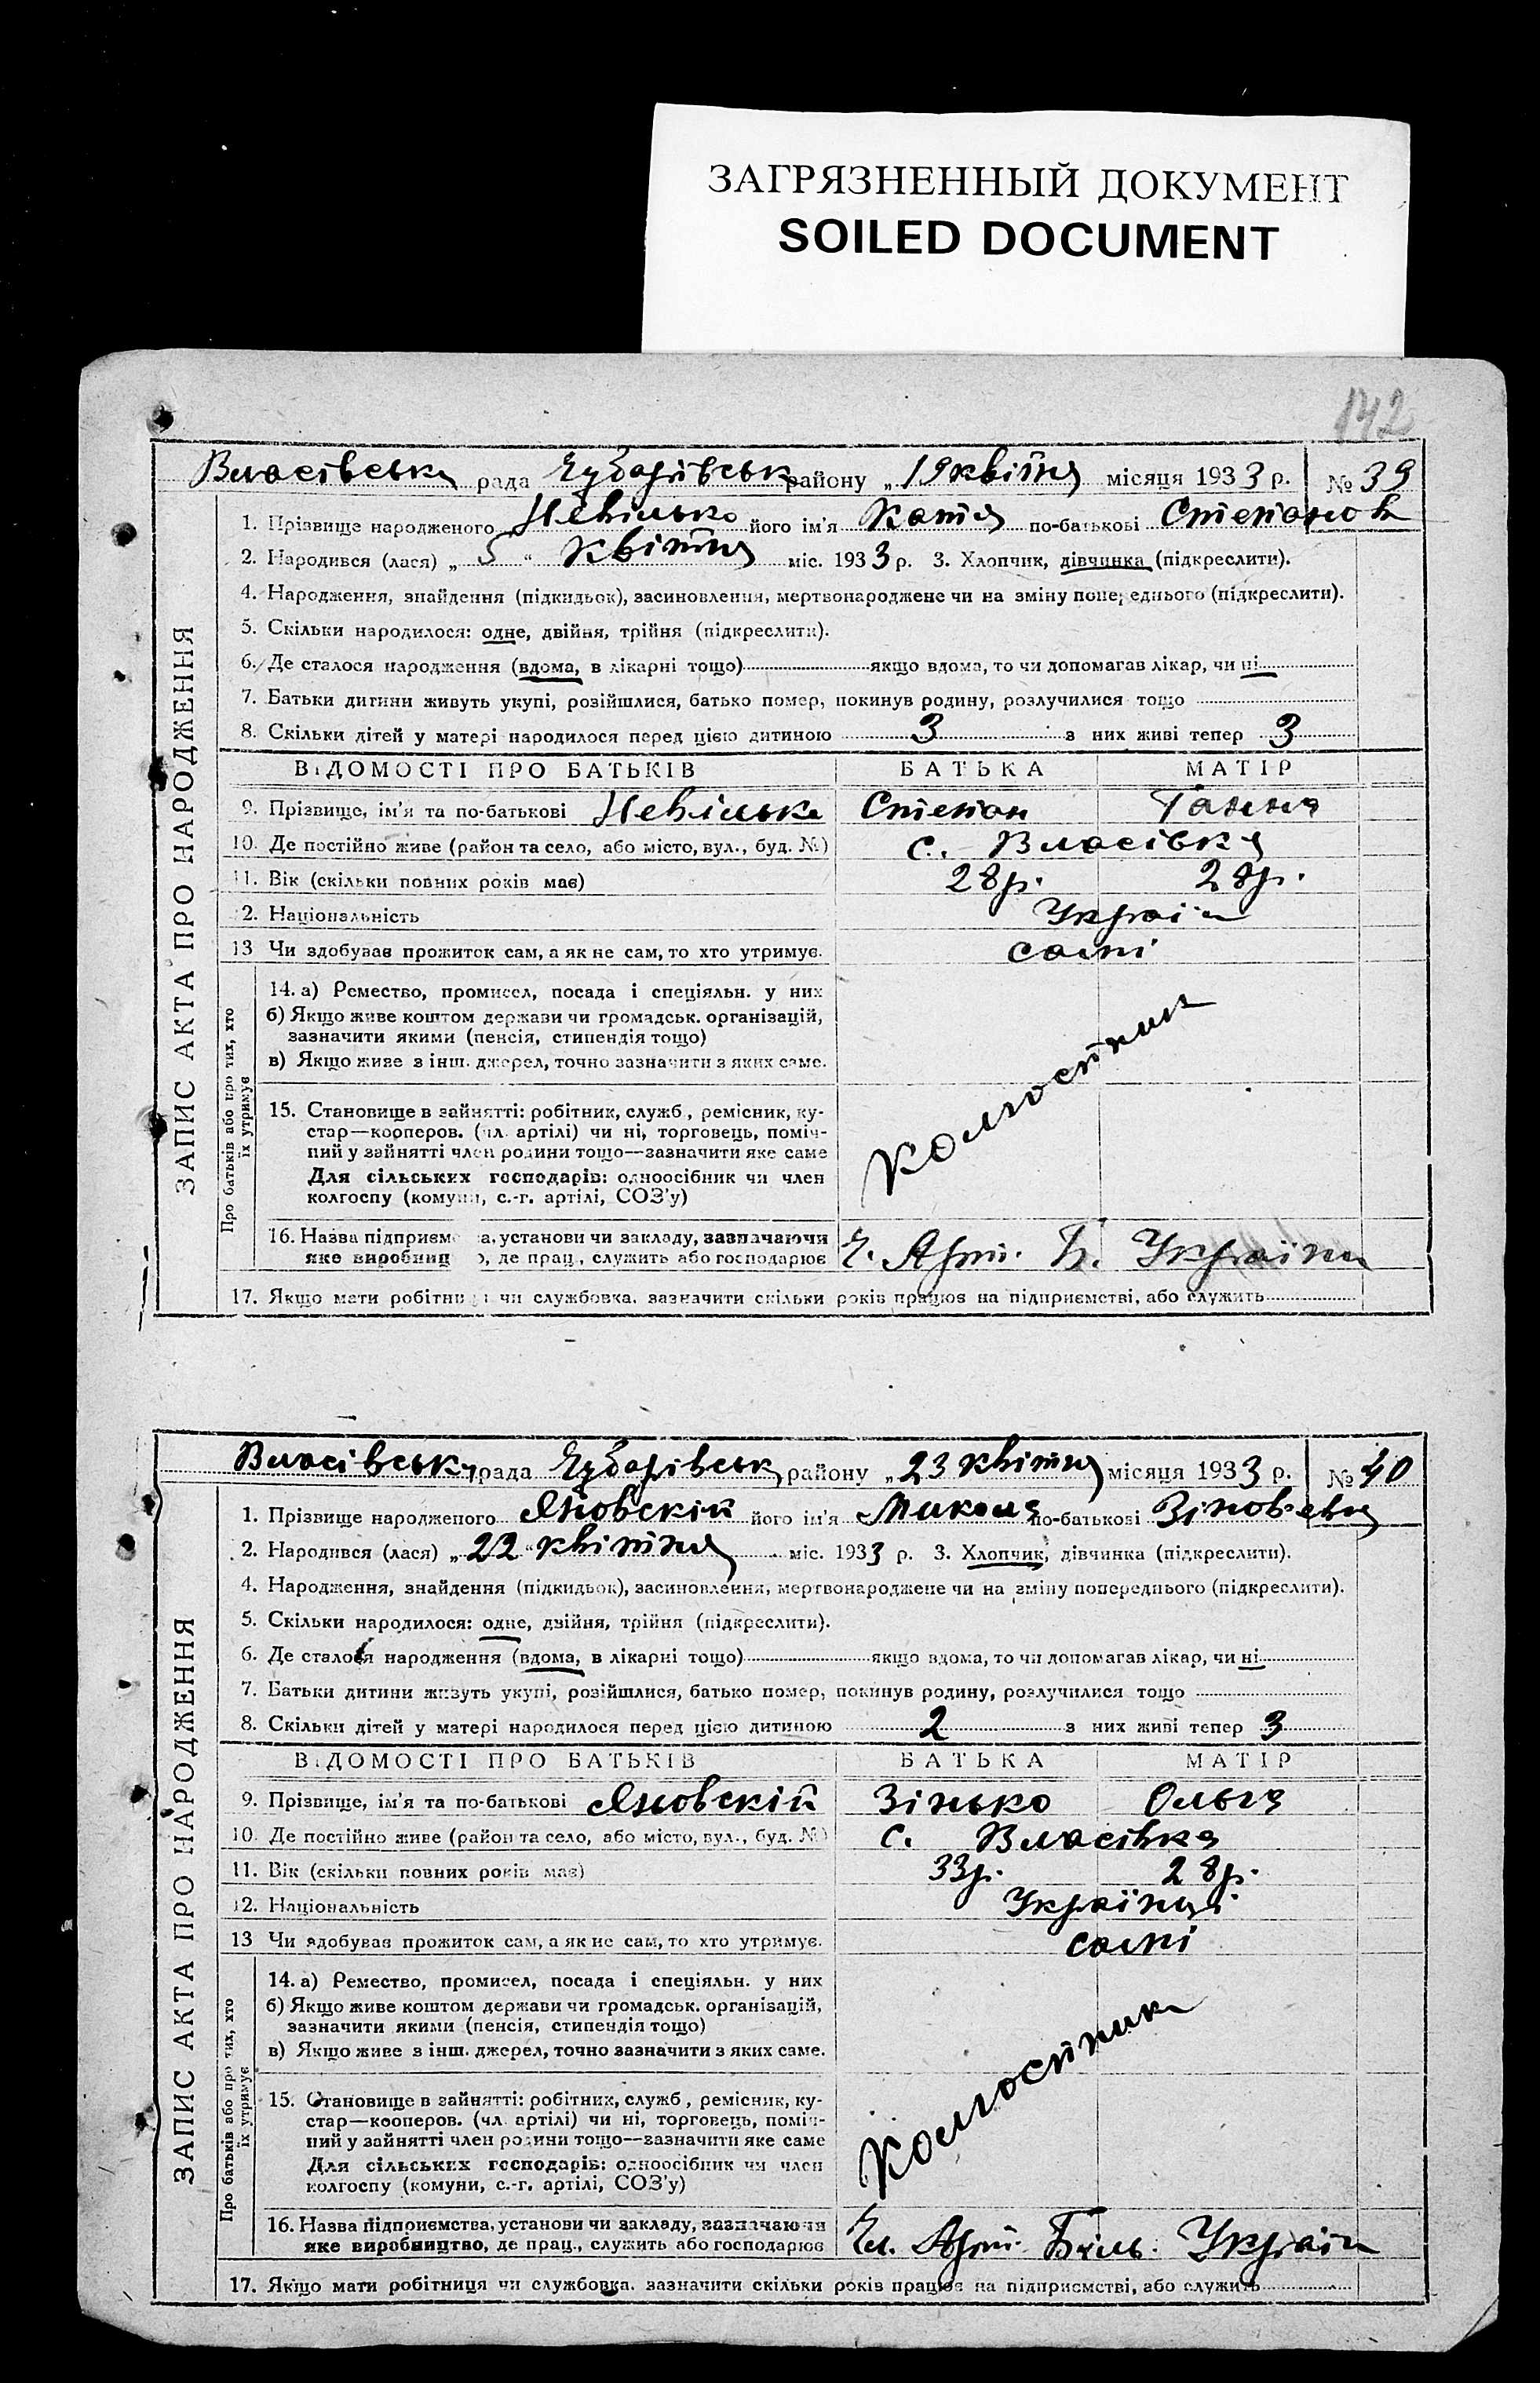 ЗАГРЯЗНЕННЫЙ ДОКУМЕНТ
SOILED DOCUMENT
142
Власівська рада Чубарівськ району „19 квітня місяця 1933 р. № 39
ЗАПИС АКТА ПРО НАРОДЖЕННЯ
1. Прізвище народженого Невілько його ім'я Катя по-батькові Степанов
2. Народився (лася) „5“ Квітня міс. 1933 р. 3. Хлопчик, дівчинка (підкреслити).
4. Народження, знайдення (підкидьок), засиновлення, мертвонароджене чи на зміну попереднього (підкреслити).
5. Скільки народилося: одне, двійня, трійня (підкреслити).
6. Де сталося народження (вдома, в лікарні тощо) якщо вдома, то чи допомагав лікар, чи ні
7. Батьки дитини живуть укупі, розійшлися, батько помер, покинув родину, розлучилися тощо
8. Скільки дітей у матері народилося перед цією дитиною 3 з них живі тепер 3
ВІДОМОСТІ ПРО БАТЬКІВ БАТЬКА МАТІР
9. Прізвище, ім'я та по-батькові Невілько Степан Ганна
10. Де постійно живе (район та село, або місто, вул., буд. №) с. Власівка
11. Вік (скільки повних років має) 28р. 28р.
12. Національність Україн
13 Чи здобував прожиток сам, а як не сам, то хто утримує. самі
Про батьків або про тих, хто їх утримує
14. а) Ремество, промисел, посада і спеціяльн. у них
б) Якщо живе коштом держави чи громадськ. організацій,
зазначити якими (пенсія, стипендія тощо)
в) Якщо живе з інш. джерел, точно зазначити з яких саме.
колгоспник
15. Становище в зайнятті: робітник, служб, ремісник, ку-
стар—кооперов. (чл. артілі) чи ні, торговець, поміч-
ний у зайнятті член родини тощо—зазначити яке саме
Для сільських господарів: одноосібник чи член
колгоспу (комуни, с.-г. артілі, СОЗ'у)
16. Назва підприємства, установи чи закладу, зазначаючи
яке виробництво, де прац., служить або господарює Артіл. Б. Україна
17. Якщо мати робітниця чи службовка, зазначити скільки років працює на підприємстві, або служить
Власівська рада Чубарівськ району „23 квітня місяця 1933 р. № 40
ЗАПИС АКТА ПРО НАРОДЖЕННЯ
1. Прізвище народженого Яновскій його ім'я Микола по-батькові
2. Народився (лася) „22“ квітня міс. 1933 р. 3. Хлопчик, дівчинка (підкреслити).
4. Народження, знайдення (підкидьок), засиновлення, мертвонароджене чи на зміну попереднього (підкреслити).
5. Скільки народилося: одне, двійня, трійня (підкреслити).
6. Де сталося народження (вдома, в лікарні тощо) якщо вдома, то чи допомагав лікар, чи ні
7. Батьки дитини живуть укупі, розійшлися, батько помер, покинув родину, розлучилися тощо
8. Скільки дітей у матері народилося перед цією дитиною 2 з них живі тепер 3
ВІДОМОСТІ ПРО БАТЬКІВ БАТЬКА МАТІР
9. Прізвище, ім'я та по-батькові Яновскій Зінько Ольга
10. Де постійно живе (район та село, або місто, вул., буд. №) с. Власівка
11. Вік (скільки повних років має) 33р. 28р.
12. Національність Українці
13 Чи здобував прожиток сам, а як не сам, то хто утримує. самі
Про батьків або про тих, хто їх утримує
14. а) Ремество, промисел, посада і спеціяльн. у них
б) Якщо живе коштом держави чи громадськ. організацій,
зазначити якими (пенсія, стипендія тощо)
в) Якщо живе з інш. джерел, точно зазначити з яких саме.
колгоспник
15. Становище в зайнятті: робітник, служб, ремісник, ку-
стар—кооперов. (чл. артілі) чи ні, торговець, поміч-
ний у зайнятті член родини тощо—зазначити яке саме
Для сільських господарів: одноосібник чи член
колгоспу (комуни, с.-г. артілі, СОЗ'у)
16. Назва підприємства, установи чи закладу, зазначаючи
яке виробництво, де прац., служить або господарює Чл. Артіл. Біль. Україн
17. Якщо мати робітниця чи службовка, зазначити скільки років працює на підприємстві, або служить